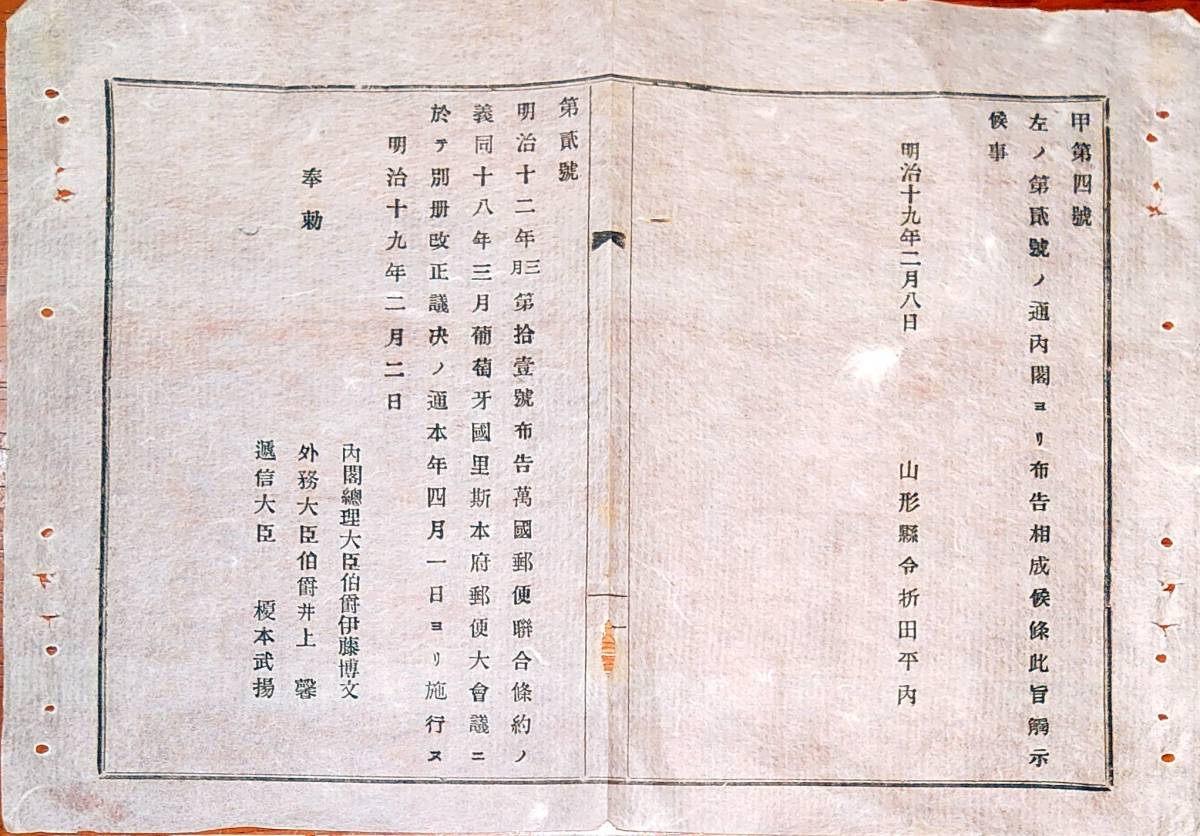 甲第四號
左ノ第貳號ノ通內閣ヨリ布告相成候條此旨觸示
候事
明治十九年二月八日
山形縣令折田平內
第貳號
明治十二年三月第拾壹號布告萬國郵便聯合條約ノ
義同十八年三月葡萄牙國里斯本府郵便大會議ニ
於テ別册改正議决ノ通本年四月一日ヨリ施行ス
明治十九年二月二日
奉勅
內閣總理大臣伯爵伊藤博文
外務大臣伯爵井上馨
遞信大臣榎本武揚